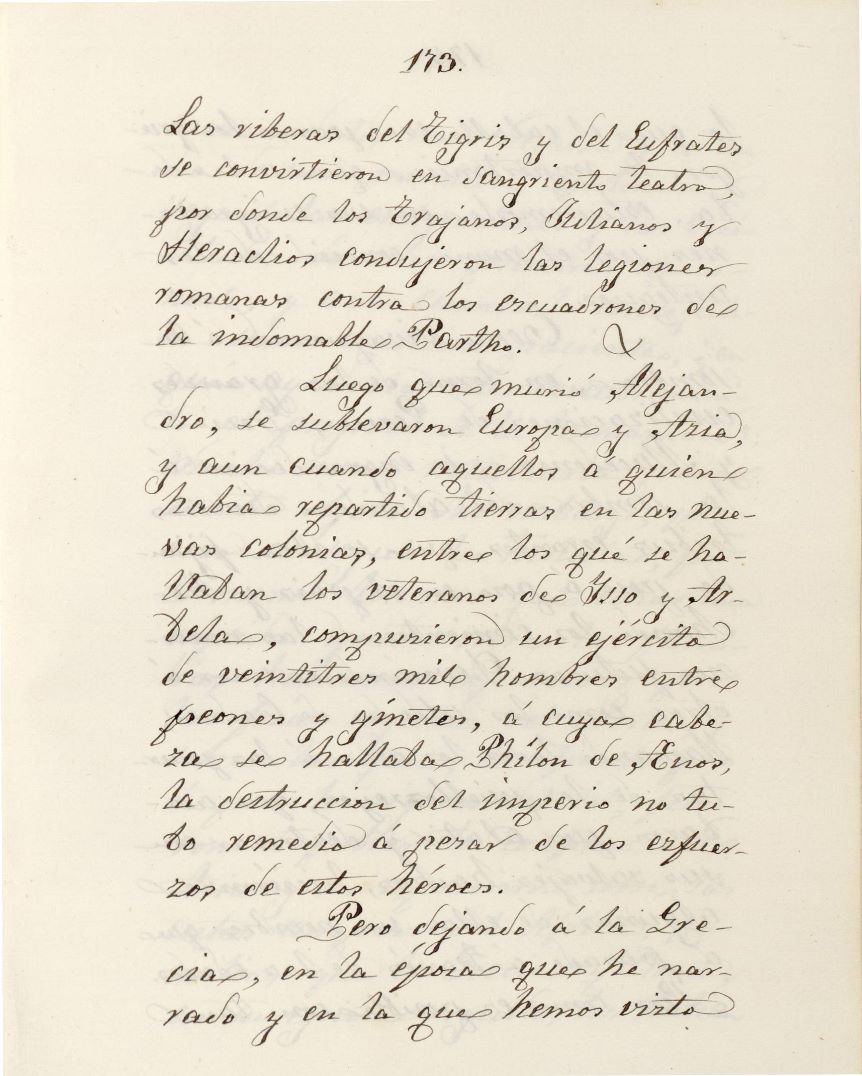 173.
Las riberas del Tigris y del Eufrates
se convirtieron en sangriento teatro,
por donde los Trajanos, Julianos y
Heraclios condujeron las legiones
romanas contra los escuadrones de
la indomable Partho.
Luego que murió Alejan-
dro, se sublevaron Europa y Asia,
y aun cuando aquellos á quien
habia repartido tierras en las nue-
vas colonias, entre los qué se ha-
llaban los veteranos de Isso y Ar-
bela, compusieron un ejército
de veintitres mil hombres entre
peones y gínetes, á cuya cabe-
za se hallaba Phílon de Ænos,
la destruccion del imperio no tu-
bo remedio á pesar de los esfuer-
zos de estos héroes.
Pero dejando á la Gre-
cia, en la época que he nar-
rado y en la que hemos visto